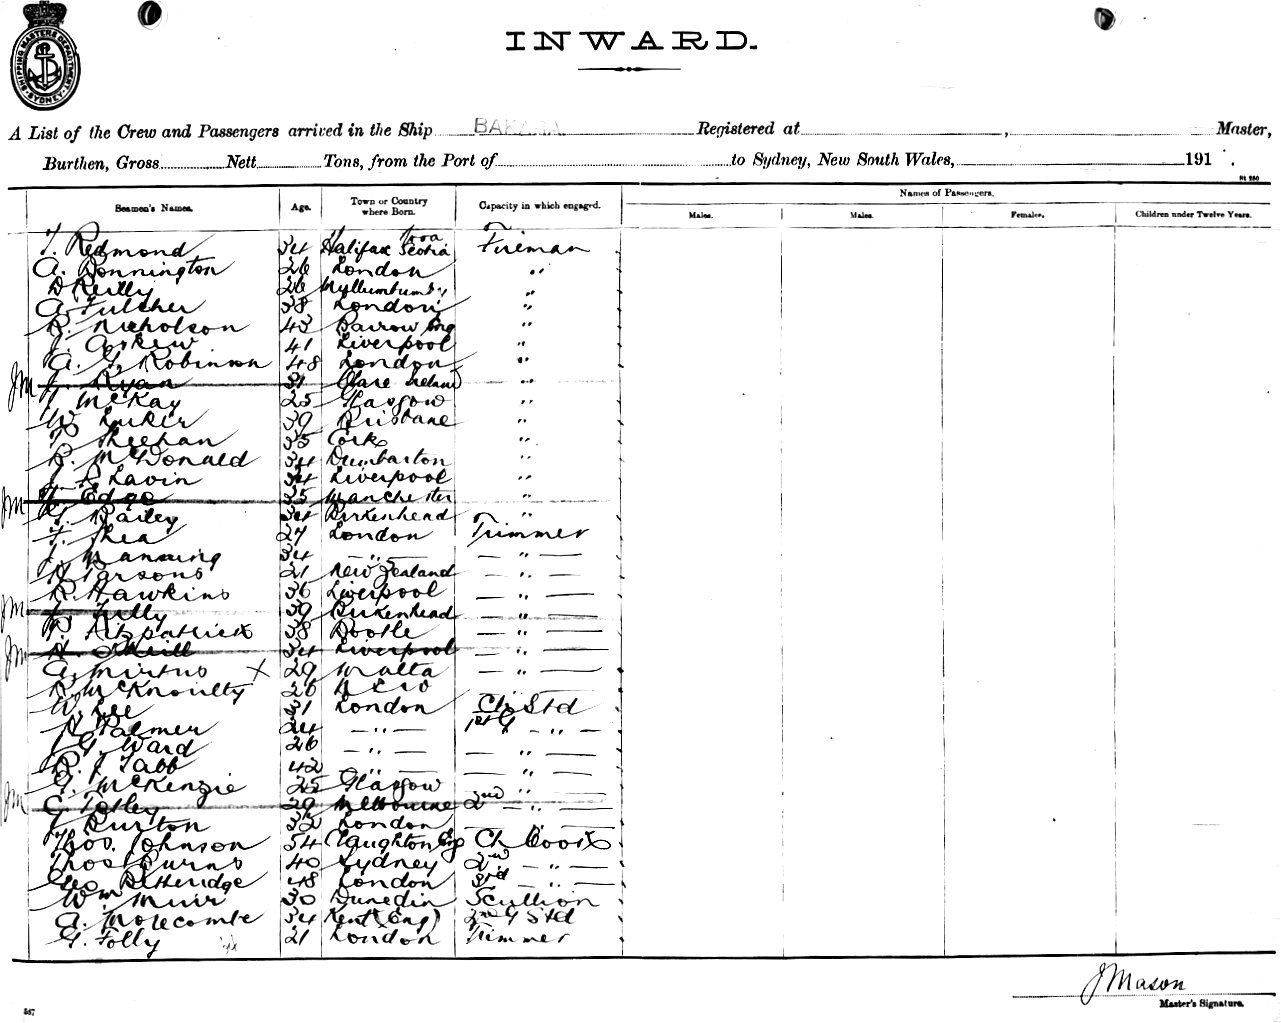 SHIPPING MASTERS DEPARTMENT SYDNEY
INWARD.
A List of the Crew and Passengers arrived in the Ship BAKARA Registered at , Master,
Burthen, Gross Nett Tons, from the Port of to Sydney, New South Wales, 191 .
Seamen's Names. Age. Town or Country where Born. Capacity in which engaged. Names of Passengers.
Males. Males. Females. Children under Twelve Years.
T. Redmond 34 Halifax Nova Scotia Fireman
A. Bonnington 26 London "
D Reilly 26 Mullumbimby "
A. Fulcher 38 London "
R. Nicholson 43 Barrow Eng "
J. Askew 41 Liverpool "
A. G. Robinson 48 London "
JM J. Ryan 31 Clare Ireland "
McKay 25 Glasgow "
W. Luker 39 Brisbane "
Sheehan 35 Cork "
R. McDonald 34 Dumbarton "
J. Lavin 34 Liverpool "
JM Edge 25 Manchester "
Bailey 34 Birkenhead "
Shea 27 London Trimmer
J. Manning 34 — " — — " —
Parsons 21 New Zealand — " —
R. Hawkins 36 Liverpool — " —
JM 39 Birkenhead — " —
Fitzpatrick 38 Bootle — " —
JM 34 Liverpool — " —
A. Mirtus X 29 Malta — " —
R. McKnoulty 26 N.S.W
W. Lee 31 London Ch Std
Palmer 24 — " — 1st — " —
J G. Ward 26 — " — — " —
R. J. Tabb 42 — " — — " —
G. McKenzie 25 Glasgow — " —
JM C. 29 Melbourne 2nd — " —
Burton 32 London — " —
Thos. Johnson 54 Claughton Eng Ch Cook
Thos Burns 40 Sydney 2nd — " —
Geo Betheridge 48 London 3rd — " —
Wm Muir 30 Dunedin Scullion
A. Morecombe 34 Kent (Eng) 2nd G Std
G. Folly 21 London Trimmer
J Mason
Master's Signature.